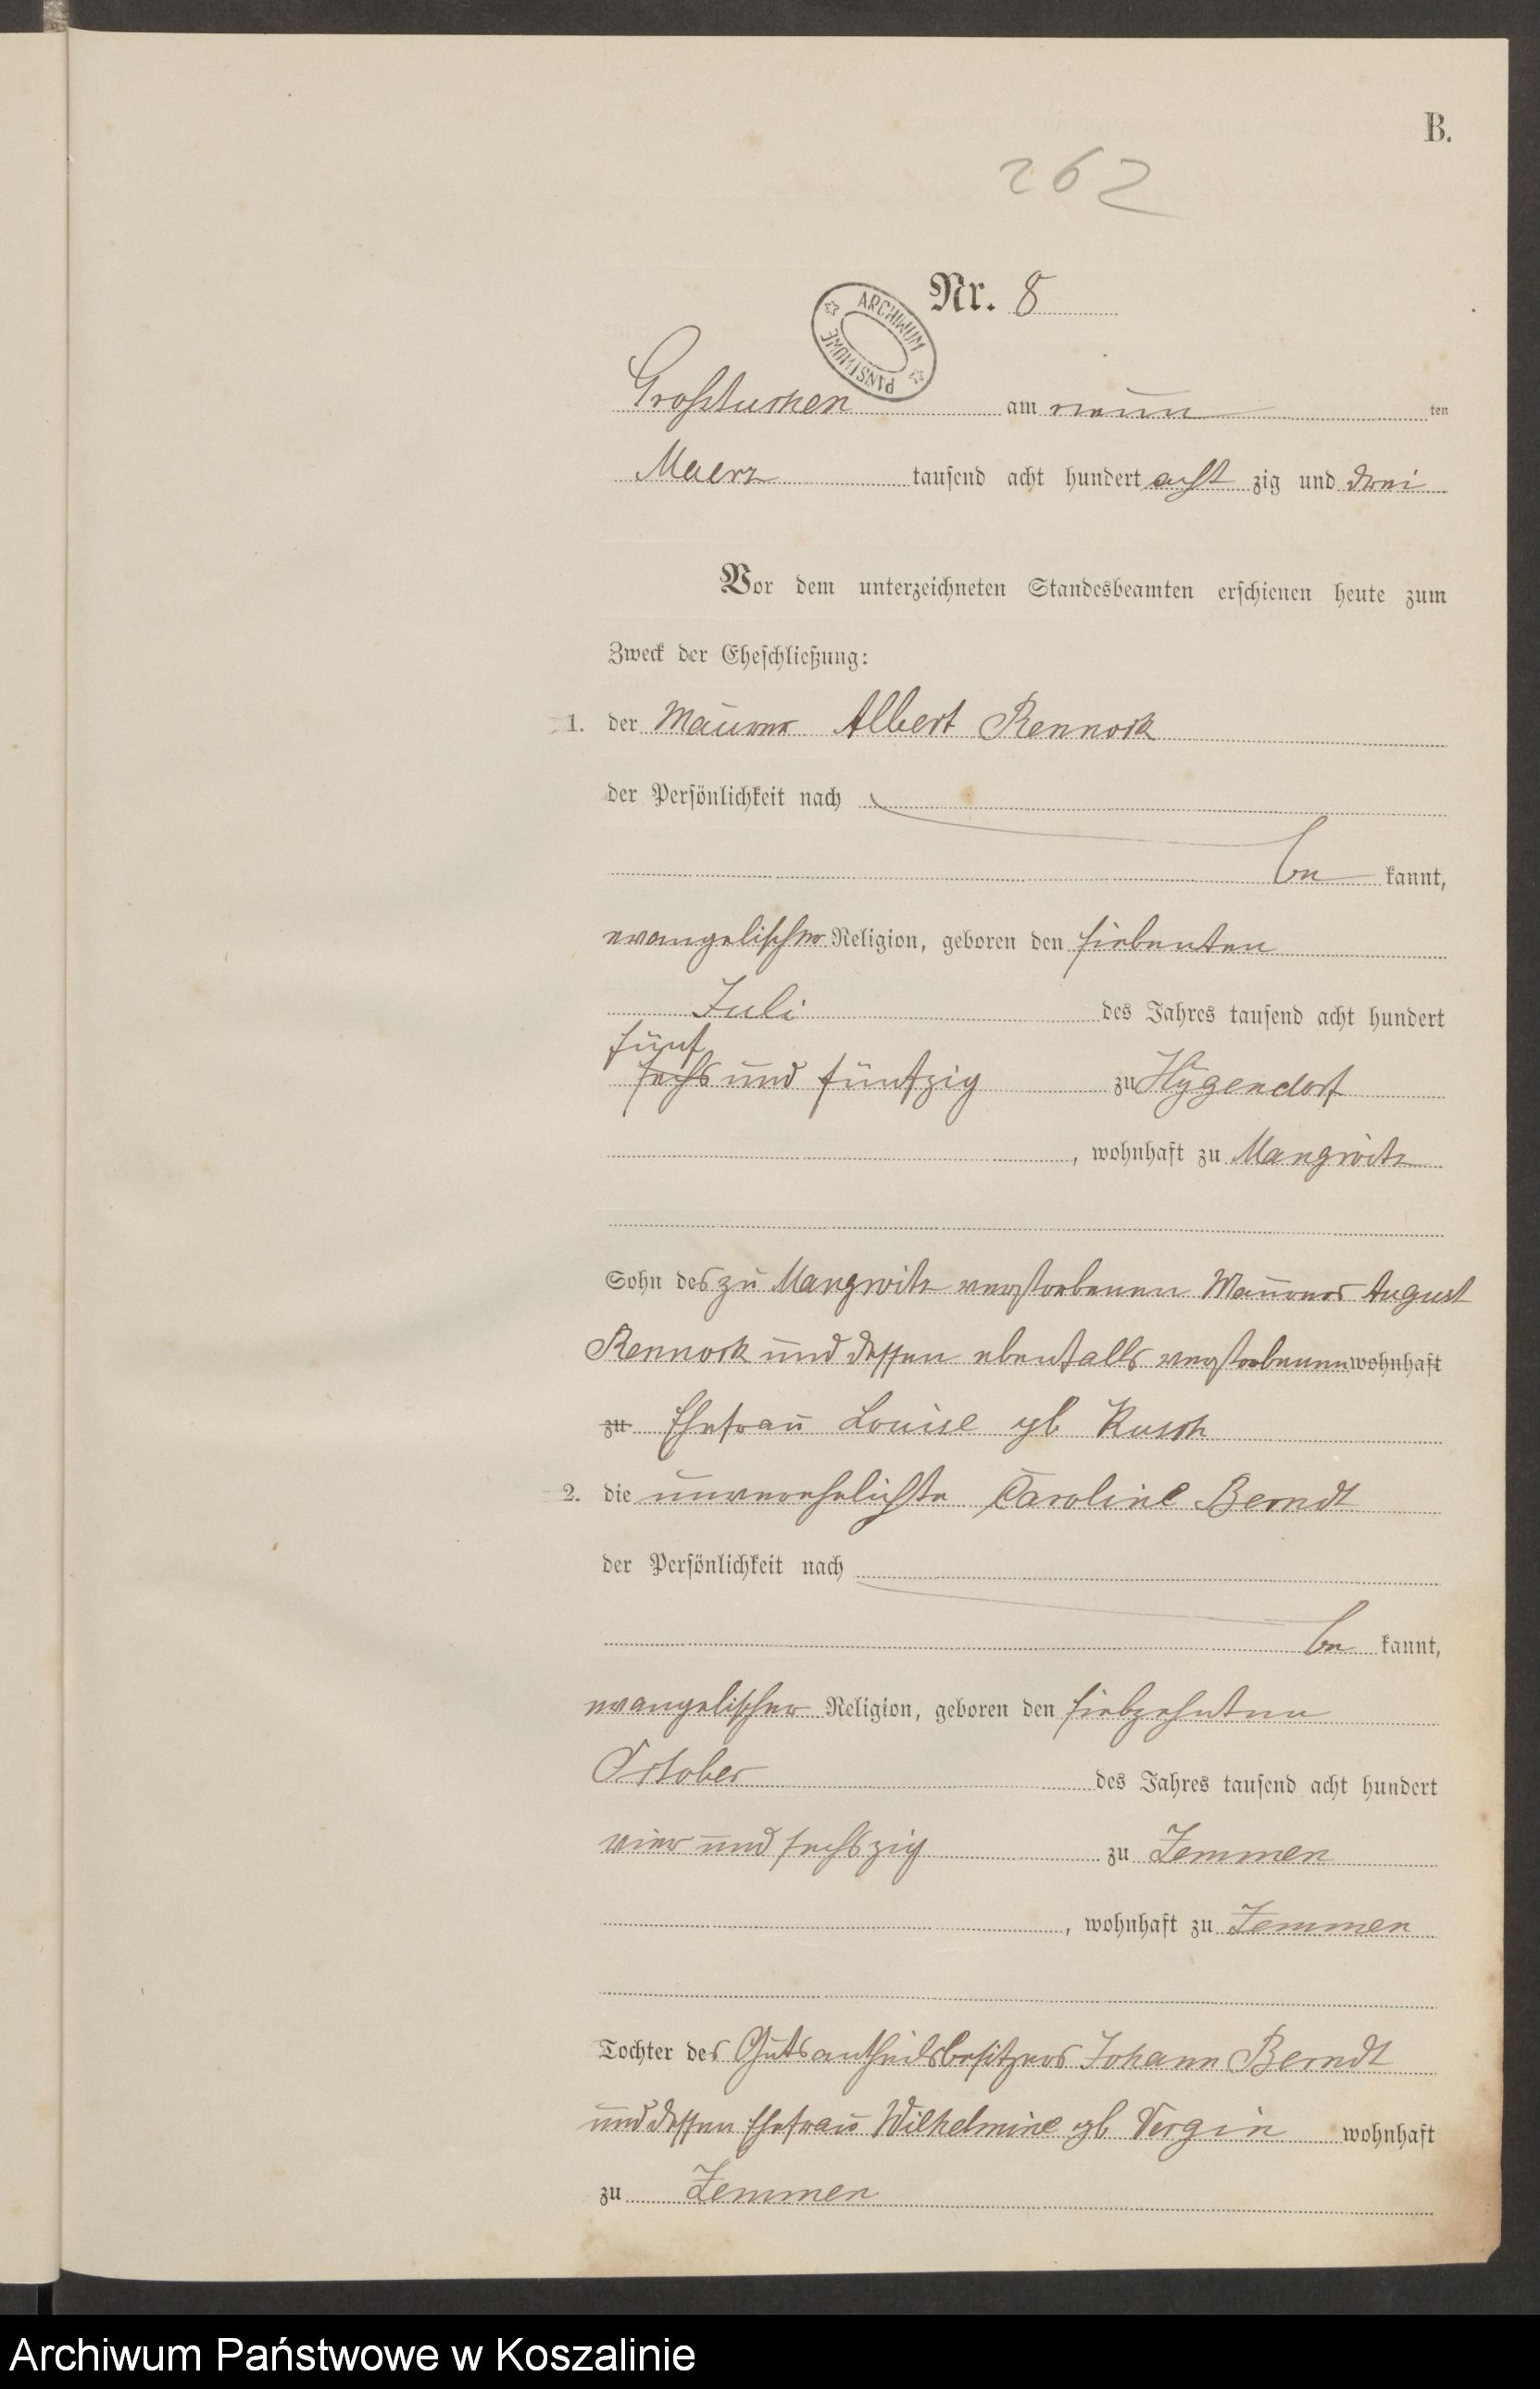 B.
262
Nr. 8
ARCHIWUM PAŃSTWOWE
Großtuchen am neun ten
Maerz tausend acht hundert acht zig und drei
Vor dem unterzeichneten Standesbeamten erschienen heute zum
Zweck der Eheschließung:
1. der Maurer Albert Rennock
der Persönlichkeit nach
be kannt,
evangelischer Religion, geboren den siebenten
Juli des Jahres tausend acht hundert
fünf
sechs und fünfzig zu Hygendorf
, wohnhaft zu Mangwitz
Sohn des zu Mangwitz verstorbenen Maurers August
Rennock und dessen ebenfalls verstorbenen wohnhaft
zu Ehefrau Louise gb
2. die unverehelichte Caroline Berndt
der Persönlichkeit nach
be kannt,
evangelischer Religion, geboren den siebzehnten
October des Jahres tausend acht hundert
vier und sechszig zu Zemmen
, wohnhaft zu Zemmen
Tochter des Gutsantheilsbesitzers Johann Berndt
und dessen Ehefrau Wilhelmine gb Vergin wohnhaft
zu Zemmen
Archiwum Państwowe w Koszalinie